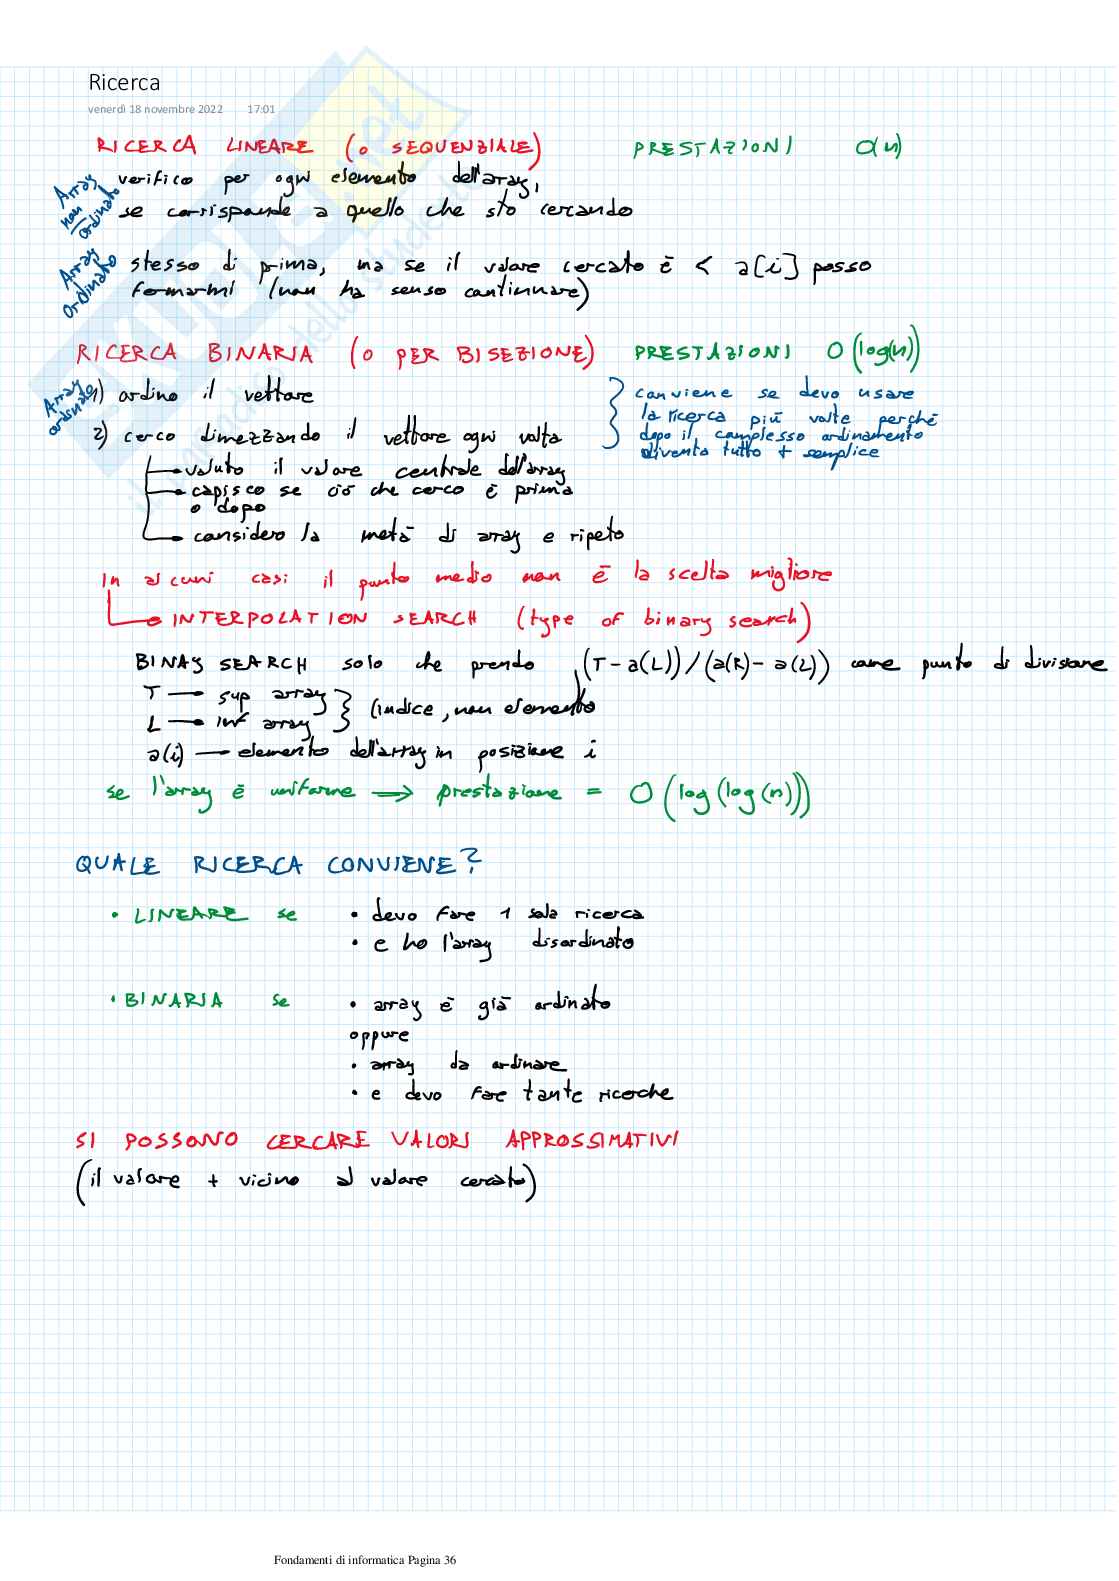 Ricerca
venerdì 18 novembre 2022 17:01
RICERCA LINEARE (O SEQUENZIALE) PRESTAZIONI O(n)
Array non ordinato
verifico per ogni elemento dell'array,
se corrisponde a quello che sto cercando
Array ordinato
stesso di prima, ma se il valore cercato è < a[i] posso
fermarmi (non ha senso continuare)
RICERCA BINARIA (O PER BISEZIONE) PRESTAZIONI O(log(n))
Array ordinato
1) ordino il vettore
2) cerco dimezzando il vettore ogni volta
conviene se devo usare
la ricerca più volte perché
dopo il complesso ordinamento
diventa tutto + semplice
valuto il valore centrale dell'array
capisco se ciò che cerco è prima
o dopo
considero la metà di array e ripeto
In alcuni casi il punto medio non è la scelta migliore
INTERPOLATION SEARCH (type of binary search)
BINAY SEARCH solo che prendo (T-a(L))/(a(R)-a(L)) come punto di divisione
T → sup array
L → inf array
(indice, non elemento
a(i) — elemento dell'array in posizione i
se l'array è uniforme → prestazione = O(log(log(n)))
QUALE RICERCA CONVIENE?
• LINEARE se • devo fare 1 sola ricerca
• e ho l'array disordinato
• BINARIA se • array è già ordinato
oppure
• array da ordinare
• e devo fare tante ricerche
SI POSSONO CERCARE VALORI APPROSSIMATIVI
(il valore + vicino al valore cercato)
Fondamenti di informatica Pagina 36